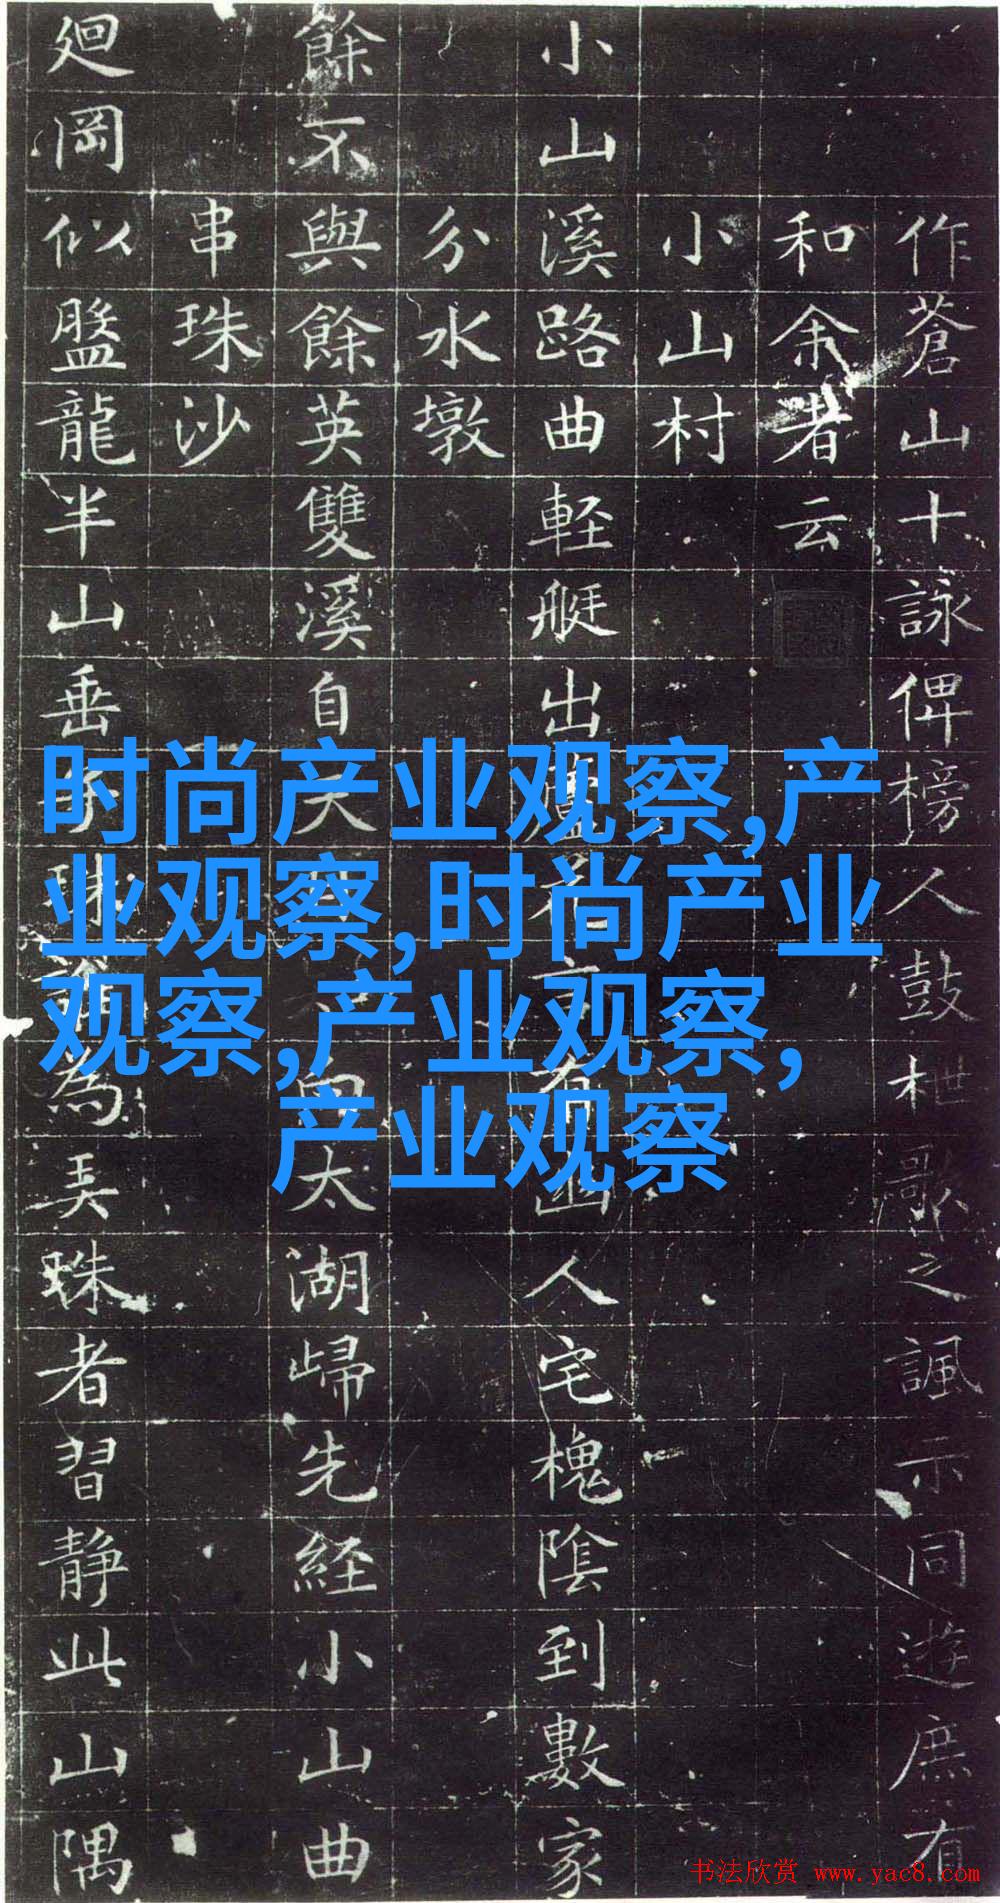 作蒼山十詠俾榜人鼓枻歌之諷示同遊庶有
和余者云
小山村
小山溪路曲軽艇出言有幽人宅槐陰到數家
分水墩
餘不與餘英雙溪自天太湖歸先経小山曲
串珠沙
廻岡似盤龍半山垂珠誰為弄珠者習静此山隅
时尚产业观察,产
业观察,时尚产业
观察,产业观察,
产业观察
书法欣赏 www.yac8.com